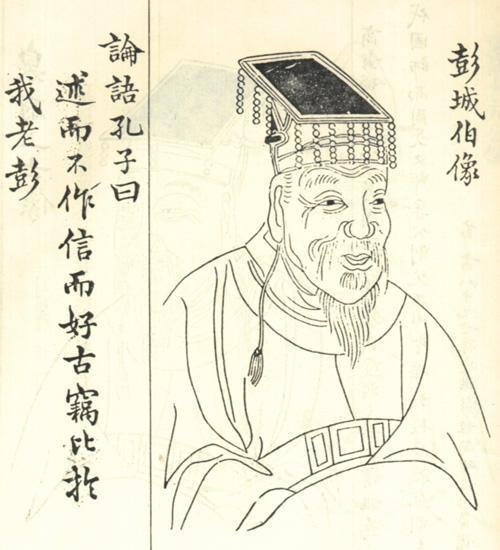 彭城伯像
論語孔子曰
述而不作信而好古竊比扵
我老彭